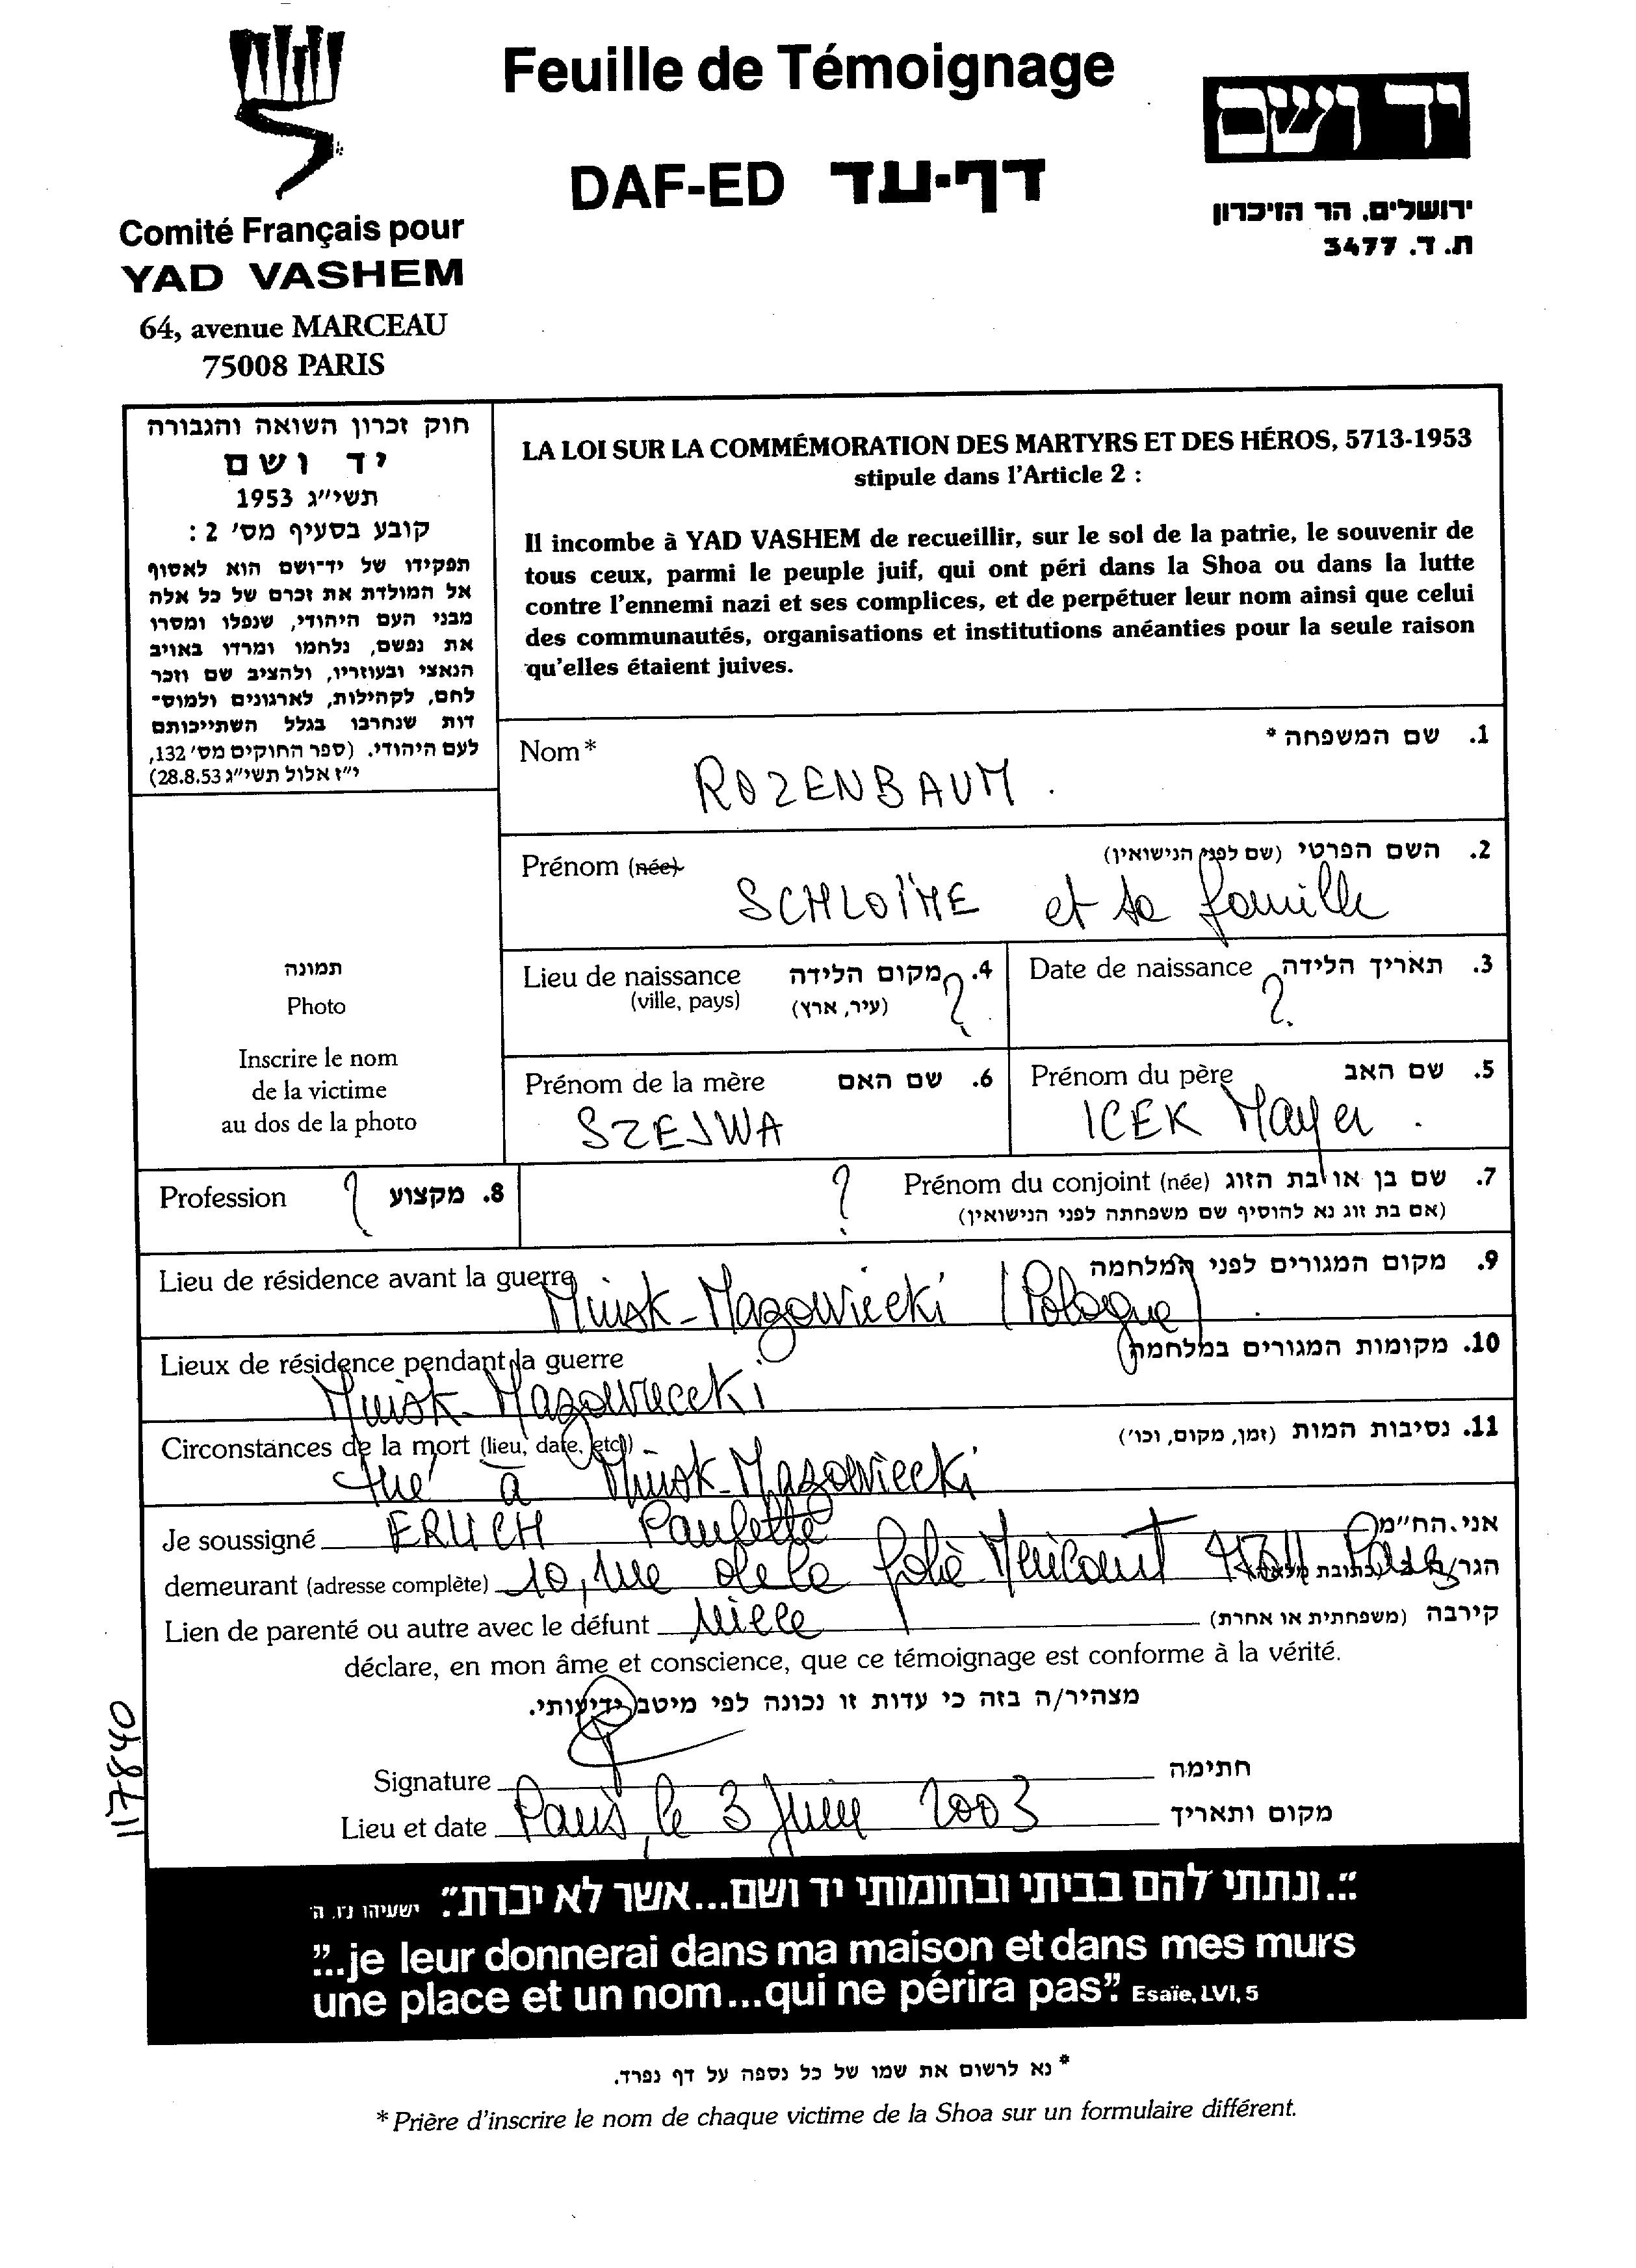 Feuille de Témoignage
DAF-ED דף-עד
Comité Français pour
YAD VASHEM
64, avenue MARCEAU
75008 PARIS
יד ושם
ירושלים, הר הזיכרון
ת. ד. 3477
חוק זכרון השואה והגבורה
יד ושם
תשי״ג 1953
קובע בסעיף מס׳ 2 :
תפקידו של יד־ושם הוא לאסוף
אל המולדת את זכרם של כל אלה
מבני העם היהודי, שנפלו ומסרו
את נפשם, נלחמו ומרדו באויב
הנאצי ובעוזריו, ולהציב שם וזכר
להם, לקהילות, לארגונים ולמוס־
דות שנחרבו בגלל השתייכותם
לעם היהודי. (ספר החוקים מס׳ 132,
י״ז אלול תשי״ג 28.8.53)
LA LOI SUR LA COMMÉMORATION DES MARTYRS ET DES HÉROS, 5713-1953
stipule dans l'Article 2 :
Il incombe à YAD VASHEM de recueillir, sur le sol de la patrie, le souvenir de
tous ceux, parmi le peuple juif, qui ont péri dans la Shoa ou dans la lutte
contre l'ennemi nazi et ses complices, et de perpétuer leur nom ainsi que celui
des communautés, organisations et institutions anéanties pour la seule raison
qu'elles étaient juives.
Nom* 1. שם המשפחה *
ROZENBAUM.
Prénom (née) 2. השם הפרטי (שם לפני הנישואין)
SCHLOÏME et sa famille
Lieu de naissance 4. מקום הלידה
(ville, pays) (עיר, ארץ) ?
Date de naissance 3. תאריך הלידה
?
Prénom de la mère 6. שם האם
SZEJWA
Prénom du père 5. שם האב
ICEK Mayer.
תמונה
Photo
Inscrire le nom
de la victime
au dos de la photo
Profession ? 8. מקצוע
? Prénom du conjoint (née) 7. שם בן או בת הזוג
(אם בת זוג נא להוסיף שם משפחתה לפני הנישואין)
Lieu de résidence avant la guerre 9. מקום המגורים לפני המלחמה
Minsk-Mazowiecki (Pologne).
Lieux de résidence pendant la guerre 10. מקומות המגורים במלחמה
Minsk-Mazowiecki
Circonstances de la mort (lieu, date, etc.) 11. נסיבות המות (זמן, מקום, וכו׳)
tué à Minsk-Mazowiecki
Je soussigné ERLICH Paulette אני, הח״מ
demeurant (adresse complète) 10, rue de la folie Méricourt 75011 Paris
Lien de parenté ou autre avec le défunt nièce קירבה (משפחתית או אחרת)
déclare, en mon âme et conscience, que ce témoignage est conforme à la vérité.
מצהיר/ה בזה כי עדות זו נכונה לפי מיטב ידיעותי.
Signature חתימה
Lieu et date Paris, le 3 Juin 2003 מקום ותאריך
"...ונתתי להם בביתי ובחומותי יד ושם...אשר לא יכרת". ישעיהו נו, ה
"...je leur donnerai dans ma maison et dans mes murs
une place et un nom...qui ne périra pas". Esaïe, LVI, 5
* נא לרשום את שמו של כל נספה על דף נפרד.
* Prière d'inscrire le nom de chaque victime de la Shoa sur un formulaire différent.